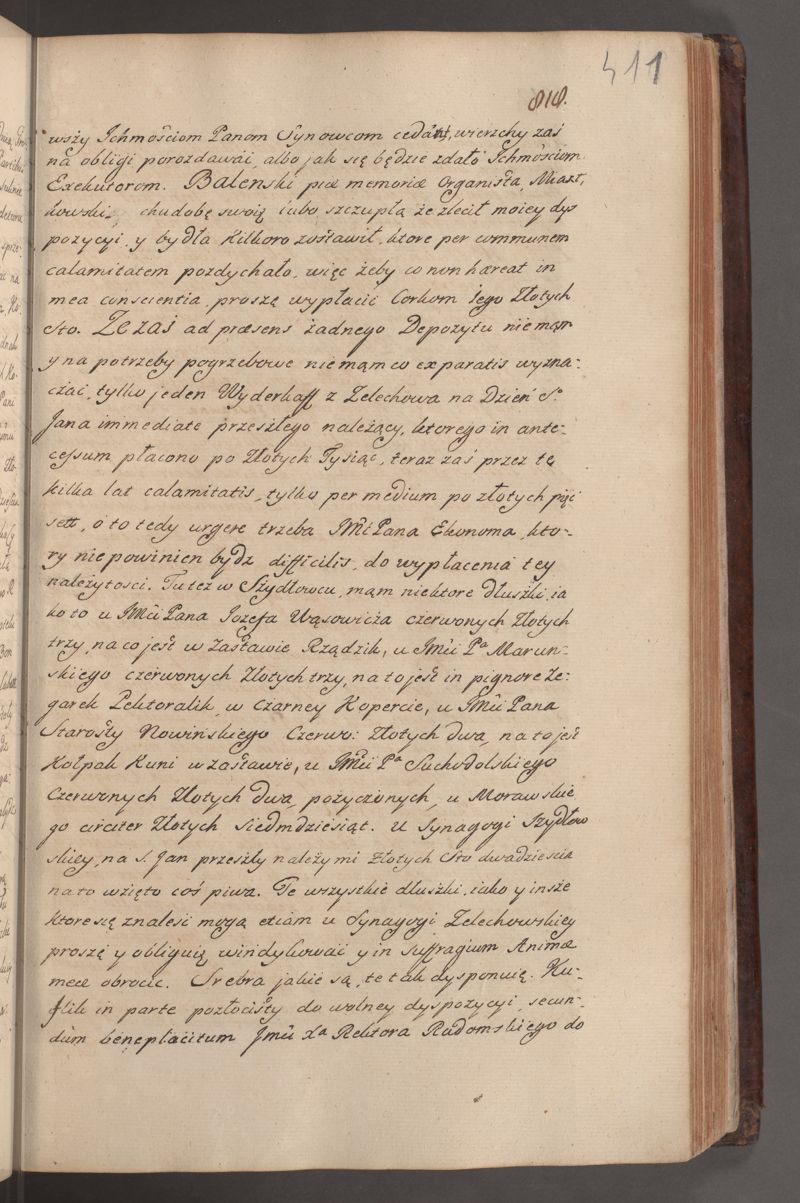 411
818.
wszy Ichmościom Panom Synowcom cedant, wierzchy zaś
na obligi porozdawać, albo jak się będzie zdało Ichmościom
Exekutorom. Balenski piæ memoriæ Organista, Miast,
kowski, chudobę swoię lubo szczupłą że zlecił moiey dys
pozycyi, y bydła kilkoro zostawił, ktore per communem
calamitatem pozdychało, więc żeby co non hæreat in
mea conscientia, proszę wypłacić Corkom Jego Złotych
Sto. Że zaś ad præsens żadnego Depozytu nie mąm
y na potrzeby pogrzebowe nie mąm co ex paratis wyzna-
czać, tylko jeden Wyderkaff z Zelechowa na Dzień S.
Jana immediate przeszłego należący, ktorego in ante-
cessum płacono po Złotych Tysiąc, teraz zaś przez te
kilka lat calamitatis, tylko per medium po złotych pięć
set, o to tedy urgere trzeba JMci Pana Ekonoma, kto-
ry nie powinien bydz difficilis, do wypłacenia tey
należytosci. Tu też w Szydłowcu, mąm niektore dłuszki, ia
ko to u JMci Pana Jozefa Wąsowicza czerwonych Złotych
trzy, na co jest w Zastawie Rządzik, u JMci Pa Marcin-
skiego czerwonych Złotych trzy, na to jest in pignore Ze-
garek Pektoralik, w Czarney Kopercie, u JMci Pana
Starosty Nowińskiego Czerwo: Złotych dwa, na to jest
Kołpak Kuni w zastawie, u JMci Pa Suchodolskiego
Czerwonych Złotych dwa, pożyczonych, u Morawskie
go circiter Złotych siedmdziesiąt. U Synagogi Szydłow
skiey, na S. Jan przeszły należy mi Złotych Sto dwadziescia
na to wzięto coś piwa. Te wszystkie dłuszki, iako y insze
ktore się znalesć mogą etiam u Synagogi Zelechowskiey
proszę y obliguię windykować y in suffragium Animæ
meæ obrocic. Srebra jakie są, te tak dysponuię. Ku-
flik in parte pozłocisty do wolney dyspozycyi, secun-
dum beneplacitum Jmci Xa Rektora Radomskiego do